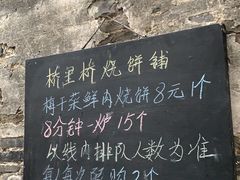 桥里桥烧饼铺
梅干菜鲜肉烧饼8元1个
8分钟一炉15个
以线内排队人数为准
每人每次限购2个